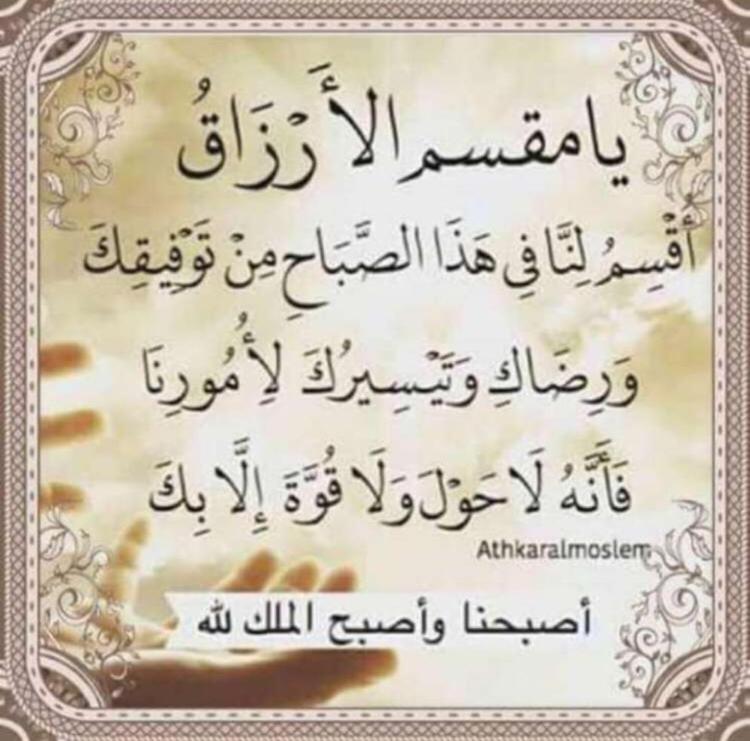 يا مقسم الأَرْزَاقُ
أَقْسِمُ لِنَّا فِي هَذَا الصَّبَاحِ مِنْ تَوْفِيقِكَ
وَرِضَاكِ وَتَيْسِيرُكَ لِأُمُورِنَا
فَأَنَّهُ لَا حَوْلَ وَلَا قُوَّةَ إِلَّا بِكَ
Athkaralmoslem
أصبحنا وأصبح الملك لله